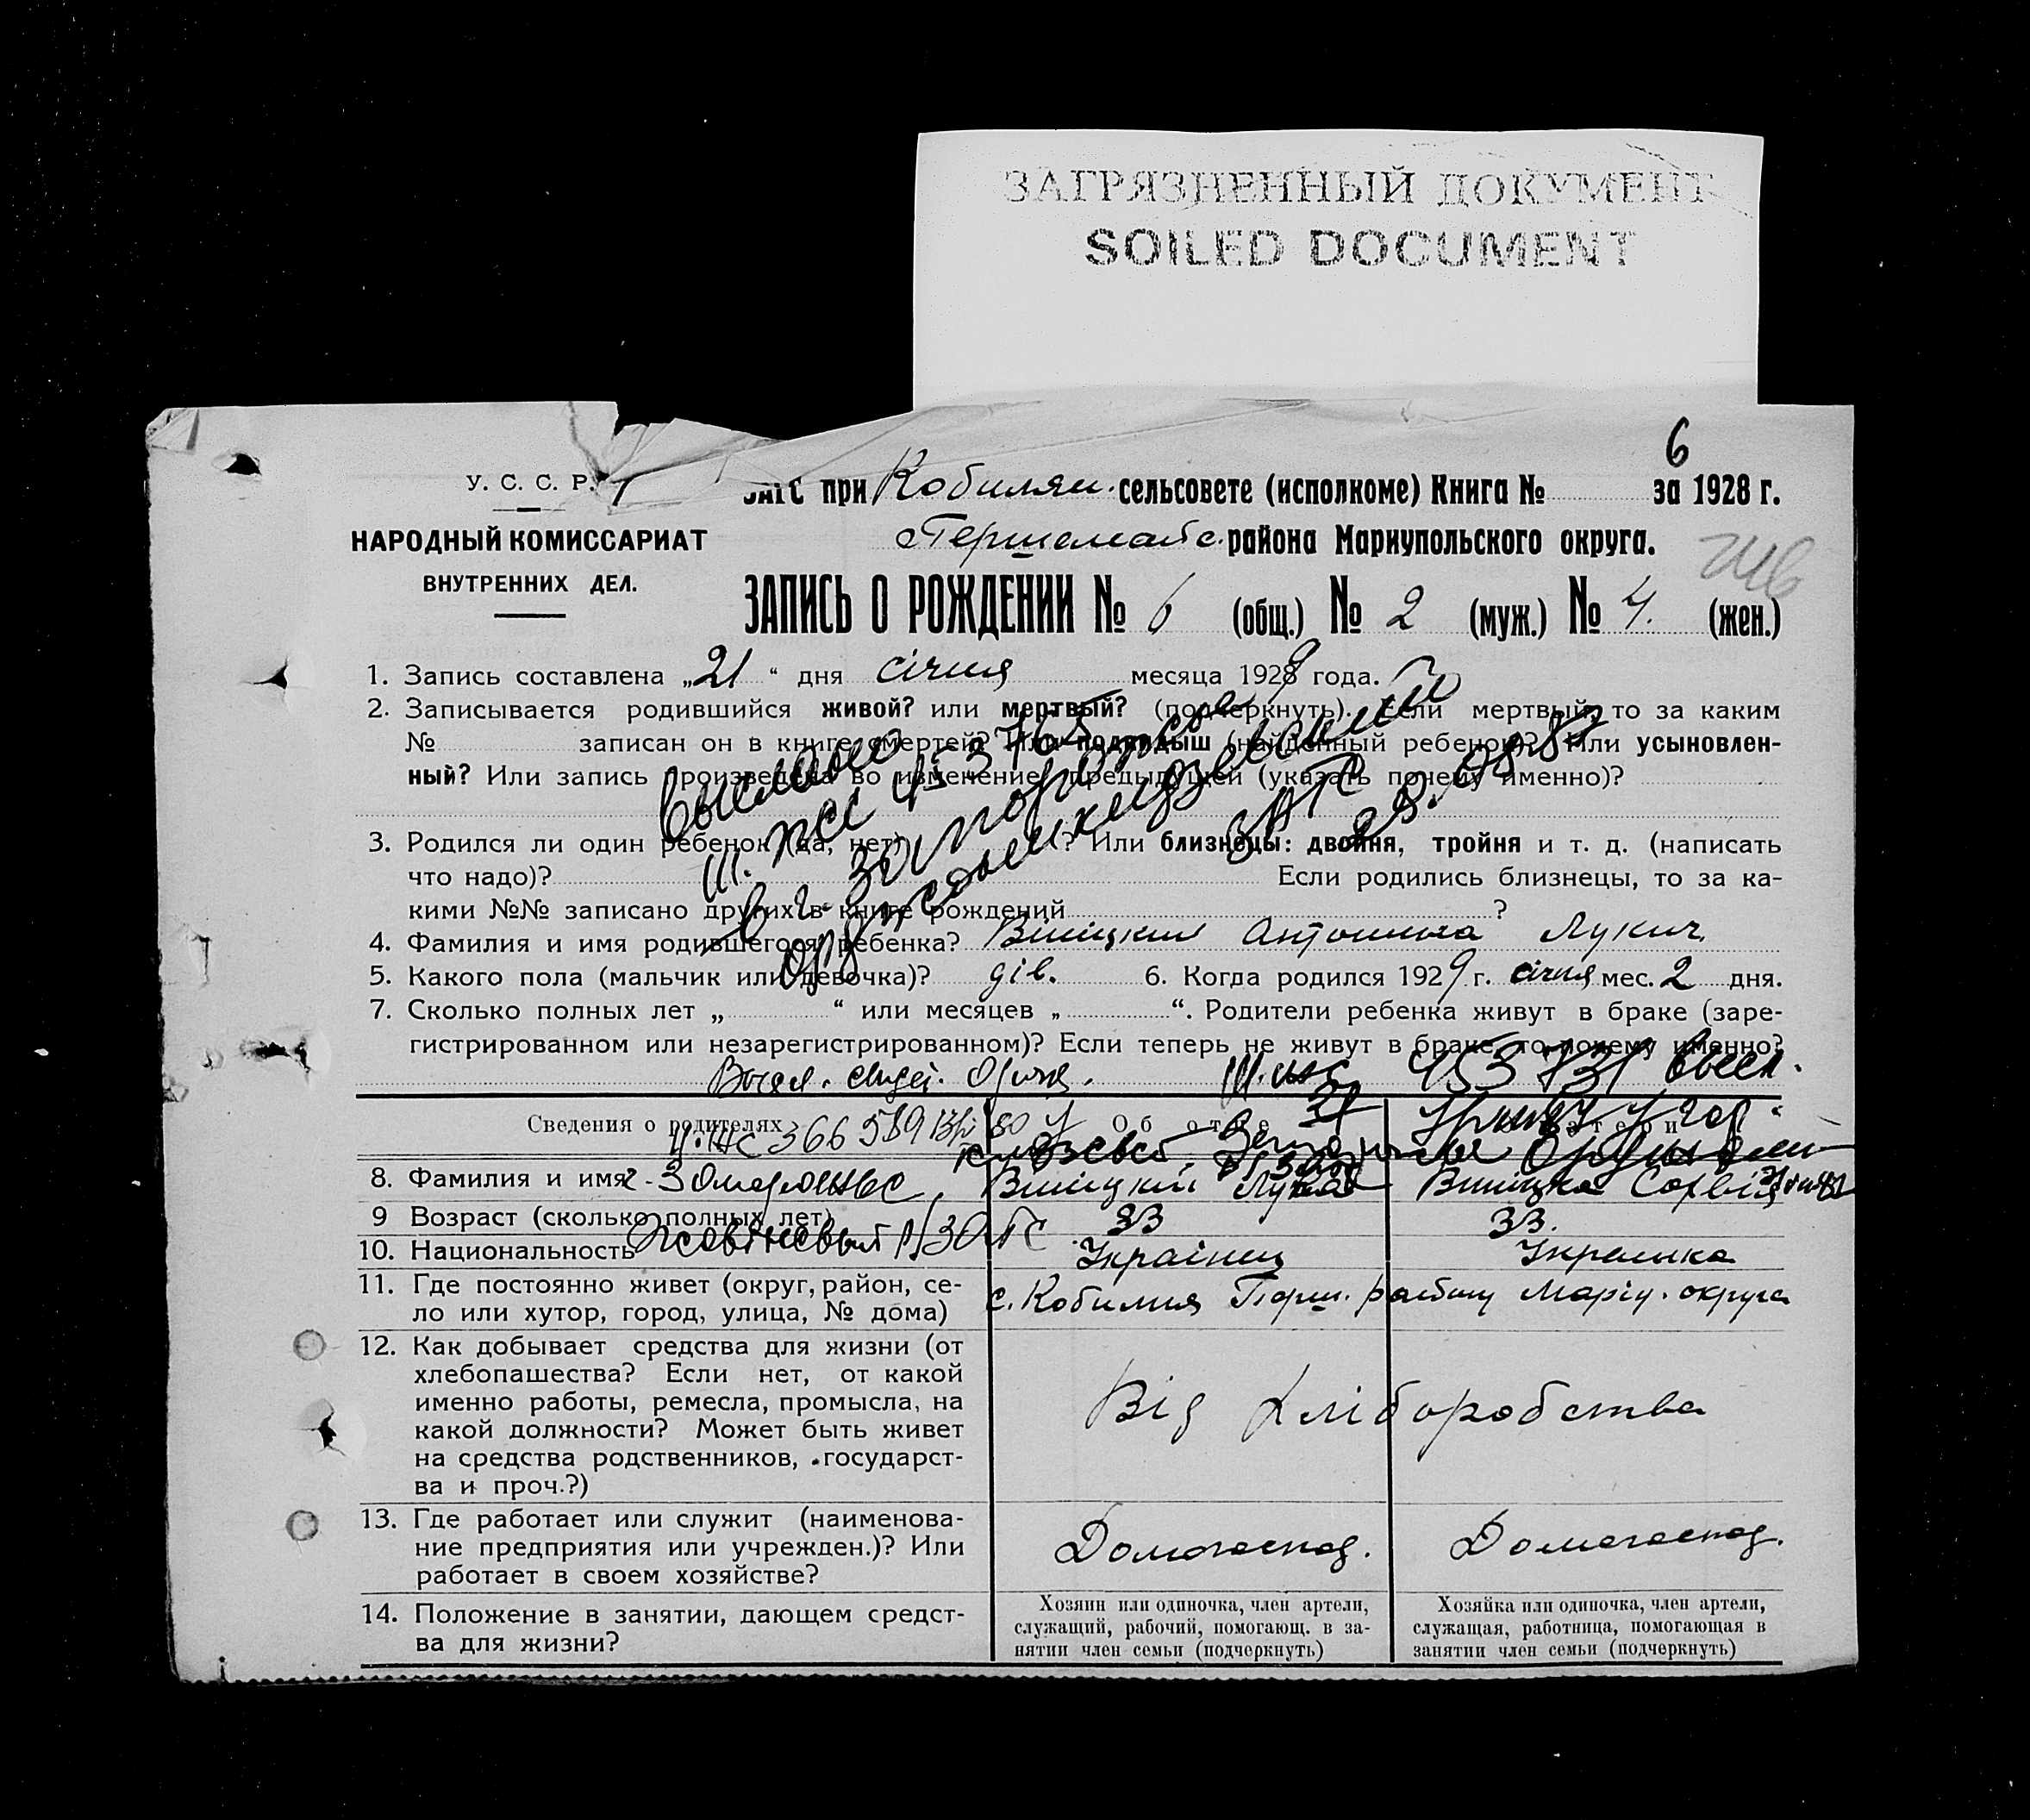 ЗАГРЯЗНЕННЫЙ ДОКУМЕНТ
SOILED DOCUMENT
6
У. С. С. Р.
ЗАГС при Кобилян. сельсовете (исполкоме) Книга № за 1928 г.
НАРОДНЫЙ КОМИССАРИАТ
ВНУТРЕННИХ ДЕЛ.
Першемайс. района Мариупольского округа.
ЗАПИСЬ О РОЖДЕНИИ № 6 (общ.) № 2 (муж.) № 4. (жен.)
1. Запись составлена „21“ дня січня месяца 1929 года.
2. Записывается родившийся живой? или мертвый? (подчеркнуть). Если мертвый, то за каким
№ записан он в книге смертей? Или подкидыш (найденный ребенок)? Или усыновлен-
ный? Или запись произведена во изменение предыдущей (указать почему именно)?
выслано
III. ПСС
в г. Запорожье
Орджоникидзевский
ЗАГС
3. Родился ли один ребенок (да, нет) ? Или близнецы: двойня, тройня и т. д. (написать
что надо)? Если родились близнецы, то за ка-
кими №№ записано других в книге рождений ?
4. Фамилия и имя родившегося ребенка? Вініцкий Антонина Лукич.
5. Какого пола (мальчик или девочка)? дів. 6. Когда родился 1929 г. січня мес. 2 дня.
7. Сколько полных лет „ “ или месяцев „ “. Родители ребенка живут в браке (заре-
гистрированном или незарегистрированном)? Если теперь не живут в браке, то почему именно?
453731 высл.
Сведения о родителях Об отце матери
366589
8. Фамилия и имя Вініцкий Лука Вініцка Софія
г. Запорожье
9 Возраст (сколько полных лет) 33 33.
10. Национальность Українец Українка
ЗАГС
11. Где постоянно живет (округ, район, се-
ло или хутор, город, улица, № дома) с. Кобилня Перш. району Маріу. округа
12. Как добывает средства для жизни (от
хлебопашества? Если нет, от какой
именно работы, ремесла, промысла, на
какой должности? Может быть живет
на средства родственников, государст-
ва и проч.?)
Від хліборобства
13. Где работает или служит (наименова-
ние предприятия или учрежден.)? Или
работает в своем хозяйстве?
Домогоспод. Домогоспод.
14. Положение в занятии, дающем средст-
ва для жизни?
Хозяин или одиночка, член артели,
служащий, рабочий, помогающ. в за-
нятии член семьи (подчеркнуть)
Хозяйка или одиночка, член артели,
служащая, работница, помогающая в
занятии член семьи (подчеркнуть)